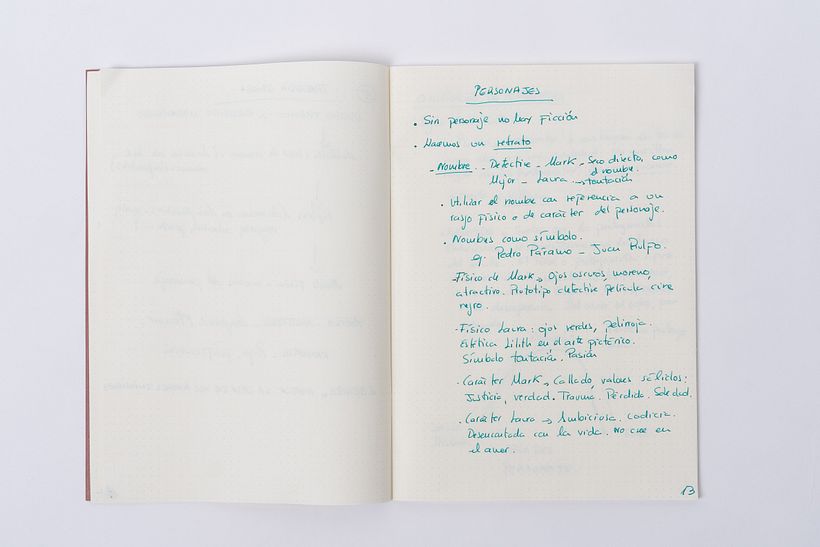 PERSONAJES
• Sin personaje no hay Ficción
• Hacemos un retrato
- Nombre.. Detective - Mark - Seco directo, como el nombre.
Mujer - Laura → tentación
• Utilizar el nombre con referencia a un
rasgo físico o de carácter del personaje.
• Nombres como símbolo.
eg. Pedro Páramo - Juan Rulfo.
- Físico de Mark → Ojos oscuros, moreno,
atractivo. Prototipo detective película cine
negro.
- Físico Laura: ojos verdes, pelirroja.
Estética Lilith en el arte pictórico.
Símbolo tentación. Pasión
• Carácter Mark → Callado, valores sólidos:
Justicia, verdad. Trauma. Pérdida. Soledad.
• Carácter Laura → Ambiciosa. Codicia.
Desencantada con la vida. No cree en
el amor.
13